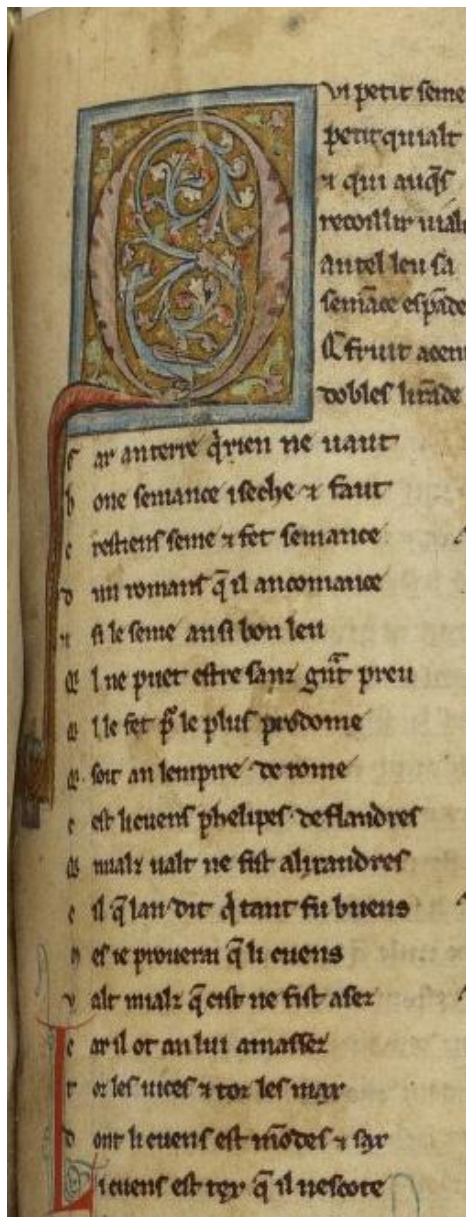 Qui petit seme
petit quialt
⁊ qui auq̃s
recoillir uialt
an tel leu sa
semãce espãde
Q̃ fruit a cent
dobles li rãde
C ar an terre q̃ rien ne uaut
b one semance i seche ⁊ faut
c restiens seme ⁊ fet semance
d un romans q̃ il ancomance
⁊ si le seme an si bon leu
Q̃ l ne puet estre sanz grãt preu
Q̃ l le fet p̃ le plus prodome
Q̃ soit an lempire de rome
c est li cuens phelipes de flandres
Q̃ mialz ualt ne fist alixandres
c il q̃ lan dit q̃ tant fu buens
M es ie prouerai q̃ li cuens
v alt mialz q̃ cist ne fist asez
c ar il ot an lui amassez
t oz les uices ⁊ toz les max
d ont li cuens est mõdes ⁊ sax
Li cuens est tex q̃ il nescote